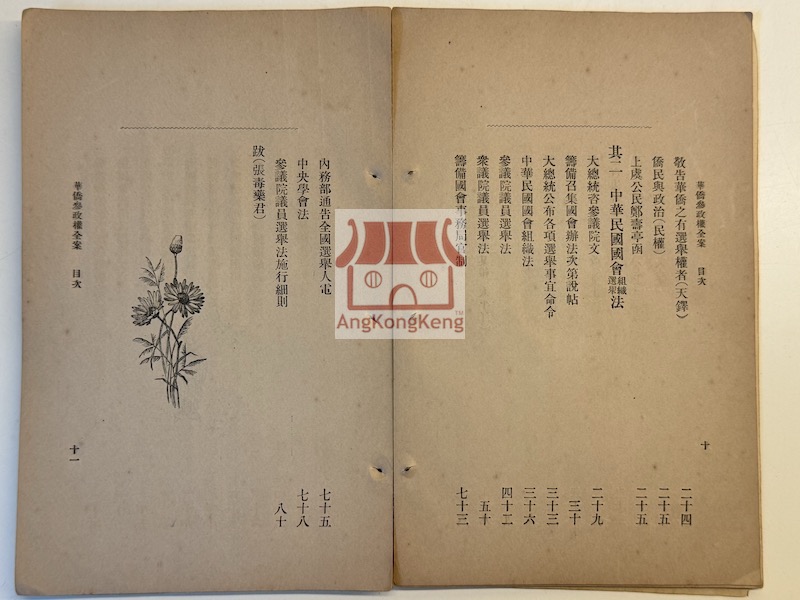 華僑參政權全案　目次
十
敬告華僑之有選舉權者（天鐸）　二十四
僑民與政治（民權）　二十五
上虞公民鄭壽亭函　二十五
其二　中華民國國會組織選舉法
大總統咨參議院文　二十九
籌備召集國會辦法次第說帖　三十
大總統公布各項選舉事宜命令　三十三
中華民國國會組織法　三十六
參議院議員選舉法　四十二
衆議院議員選舉法　五十
籌備國會事務局官制　七十三
內務部通告全國選舉人電　七十五
中央學會法　七十八
參議院議員選舉法施行細則　八十
跋（張毒藥君）
華僑參政權全案　目次
十一
AngKongKeng
TM